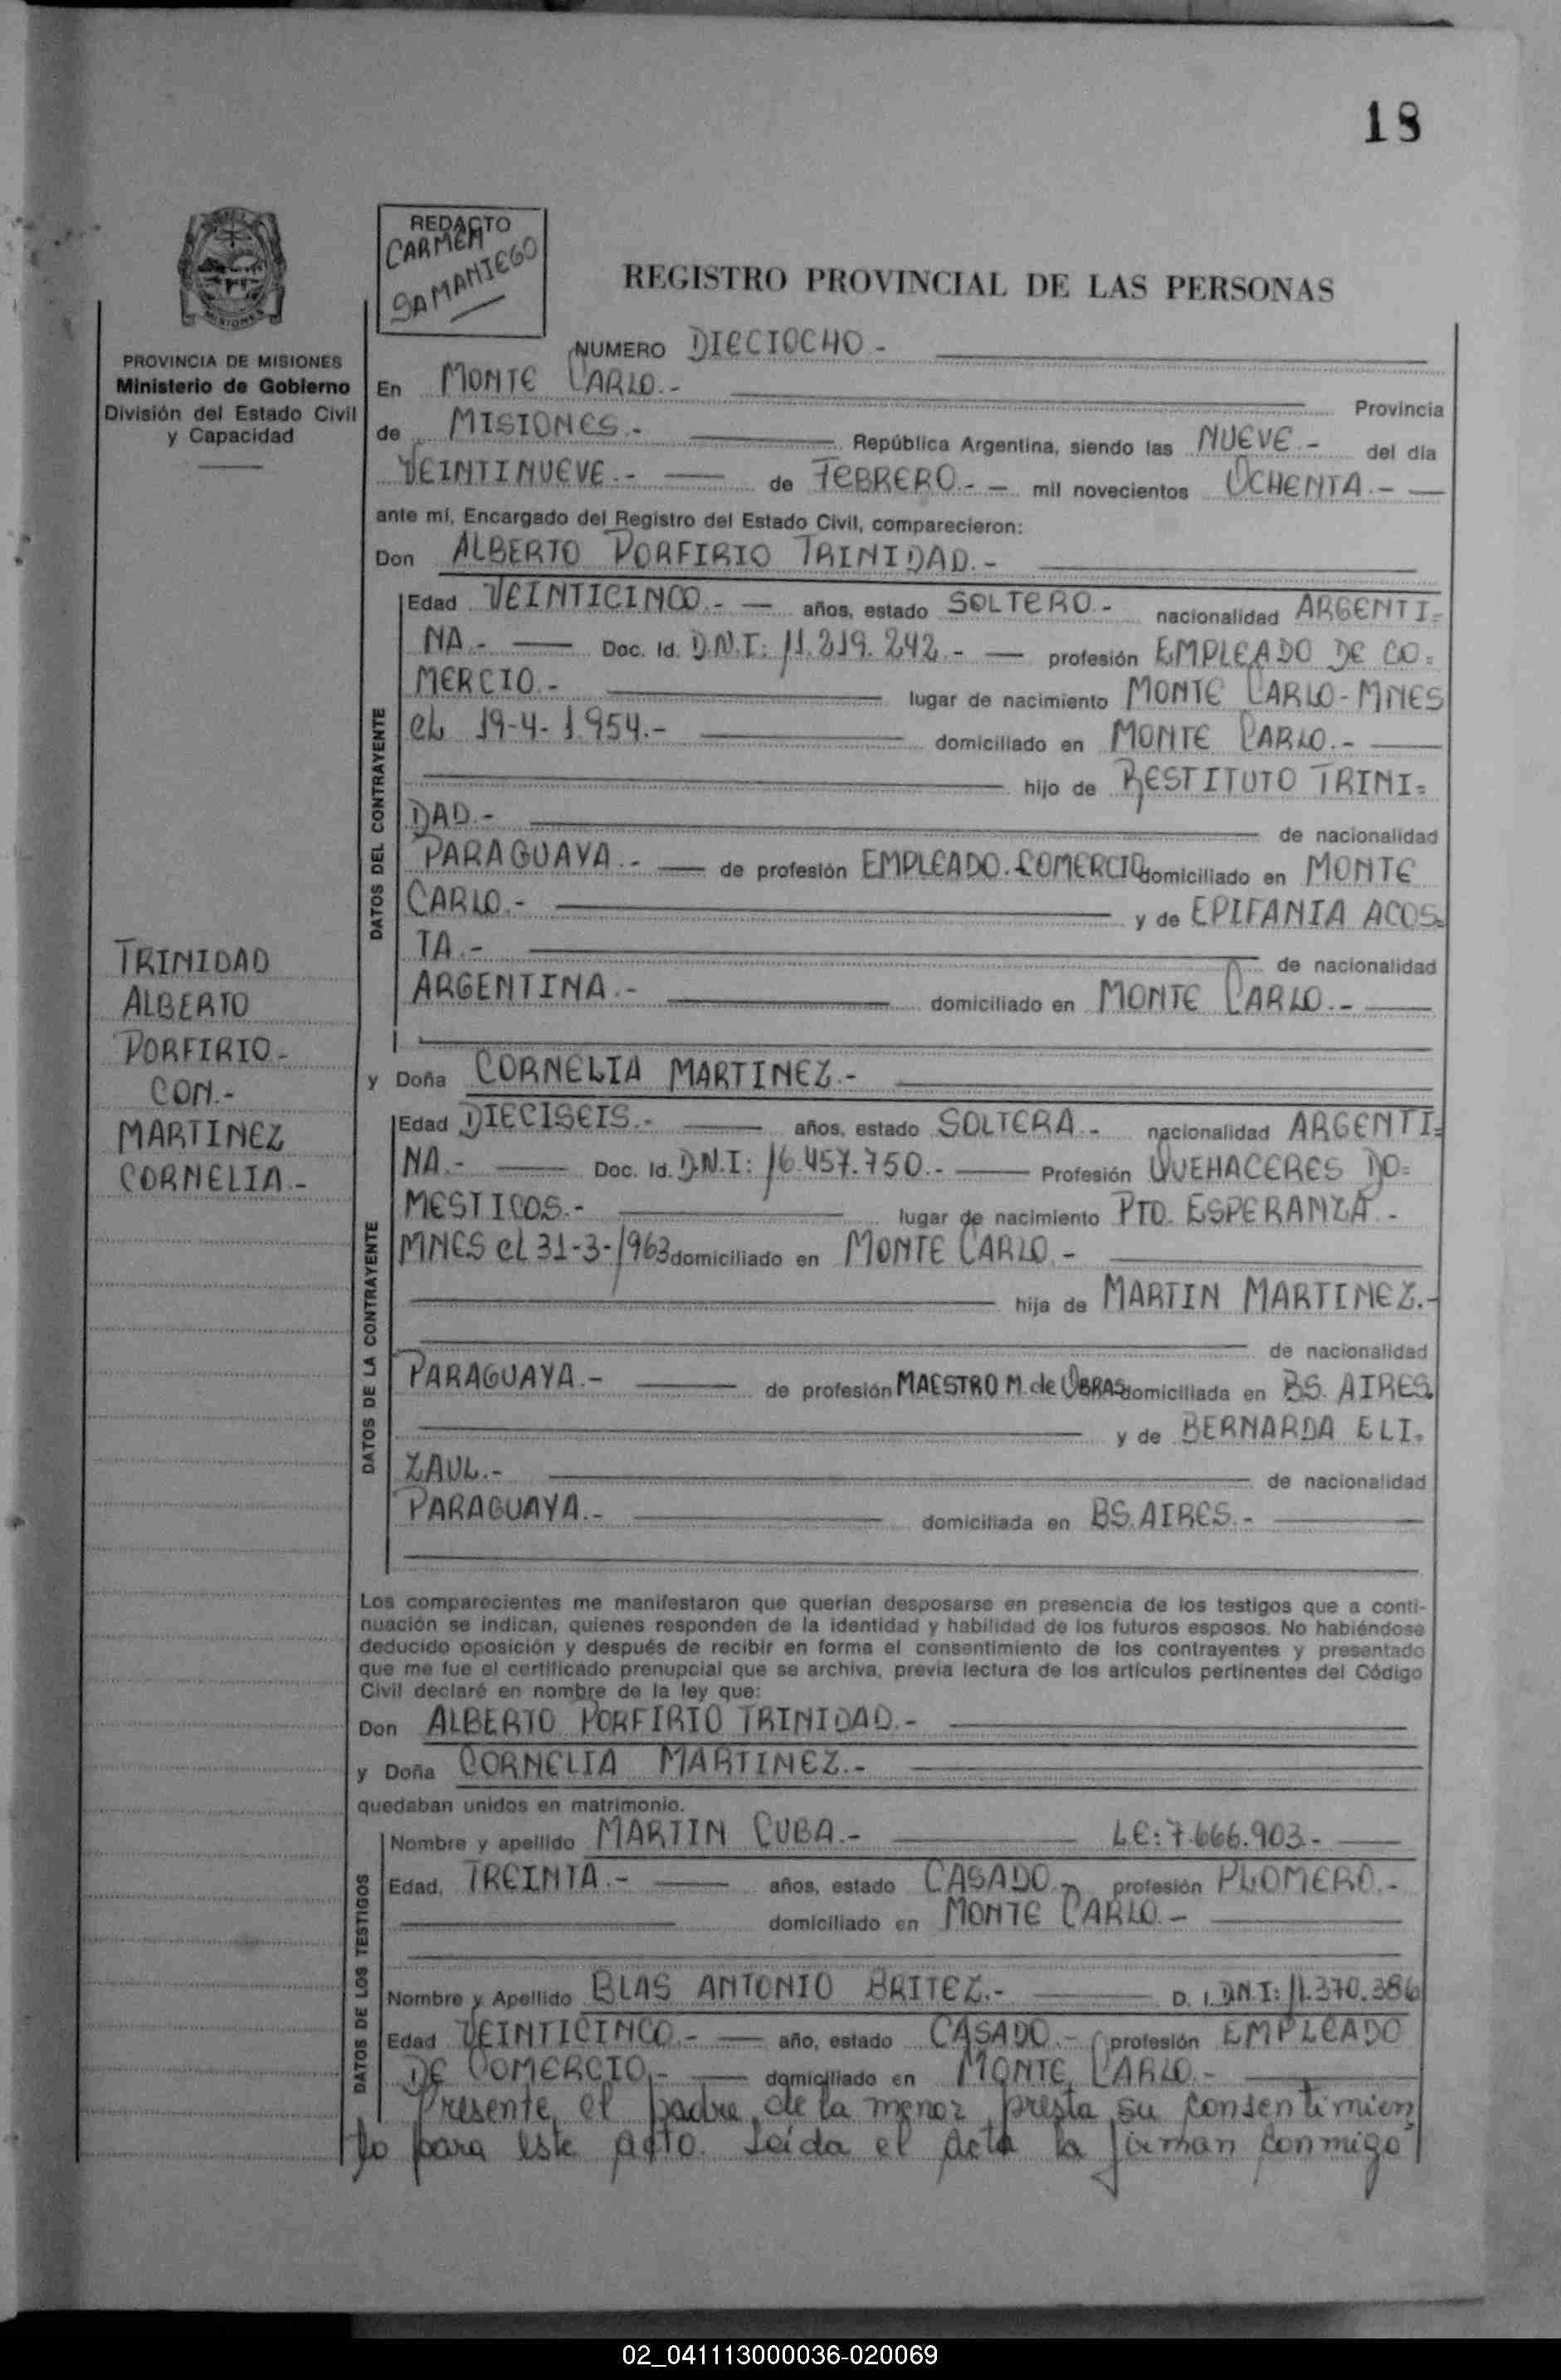 18
REDACTO
CARMEN
SAMANIEGO
REGISTRO PROVINCIAL DE LAS PERSONAS
PROVINCIA DE MISIONES
Ministerio de Gobierno
División del Estado Civil
y Capacidad
NUMERO DIECIOCHO.-
En MONTE CARLO.- Provincia
de MISIONES.- República Argentina, siendo las NUEVE.- del día
VEINTINUEVE.- de FEBRERO.- mil novecientos OCHENTA.-
ante mí, Encargado del Registro del Estado Civil, comparecieron:
Don ALBERTO PORFIRIO TRINIDAD.-
DATOS DEL CONTRAYENTE
Edad VEINTICINCO.- años, estado SOLTERO.- nacionalidad ARGENTI=
NA.- Doc. Id. D.N.I: 11.219.242.- profesión EMPLEADO DE CO=
MERCIO.- lugar de nacimiento MONTE CARLO-MNES
EL 19-4-1.954.- domiciliado en MONTE CARLO.-
hijo de RESTITUTO TRINI=
DAD.- de nacionalidad
PARAGUAYA.- de profesión EMPLEADO.COMERCIO domiciliado en MONTE
CARLO.- y de EPIFANIA ACOS=
TA.- de nacionalidad
ARGENTINA.- domiciliado en MONTE CARLO.-
TRINIDAD
ALBERTO
PORFIRIO-
CON.-
MARTINEZ
CORNELIA.-
y Doña CORNELIA MARTINEZ.-
DATOS DE LA CONTRAYENTE
Edad DIECISEIS.- años, estado SOLTERA.- nacionalidad ARGENTI=
NA.- Doc. Id. D.N.I: 16.457.750.- Profesión QUEHACERES DO=
MESTICOS.- lugar de nacimiento PTO. ESPERANZA.-
MNES el 31-3-1963 domiciliado en MONTE CARLO.-
hija de MARTIN MARTINEZ.-
de nacionalidad
PARAGUAYA.- de profesión MAESTRO M. de OBRAS domiciliada en BS. AIRES
y de BERNARDA ELI=
ZAUL.- de nacionalidad
PARAGUAYA.- domiciliada en BS. AIRES.-
Los comparecientes me manifestaron que querían desposarse en presencia de los testigos que a conti-
nuación se indican, quienes responden de la identidad y habilidad de los futuros esposos. No habiéndose
deducido oposición y después de recibir en forma el consentimiento de los contrayentes y presentado
que me fue el certificado prenupcial que se archiva, previa lectura de los artículos pertinentes del Código
Civil declaré en nombre de la ley que:
Don ALBERTO PORFIRIO TRINIDAD.-
y Doña CORNELIA MARTINEZ.-
quedaban unidos en matrimonio.
DATOS DE LOS TESTIGOS
Nombre y apellido MARTIN CUBA.- L.E: 7.666.903.-
Edad, TREINTA.- años, estado CASADO.- profesión PLOMERO.-
domiciliado en MONTE CARLO.-
Nombre y Apellido BLAS ANTONIO BRITEZ.- D. I. D.N.I: 11.370.386
Edad VEINTICINCO.- año, estado CASADO.- profesión EMPLEADO
DE COMERCIO.- domiciliado en MONTE CARLO.-
Presente el padre de la menor presta su consentimien
to para este acto. Leída el acta la firman conmigo
02_041113000036-020069